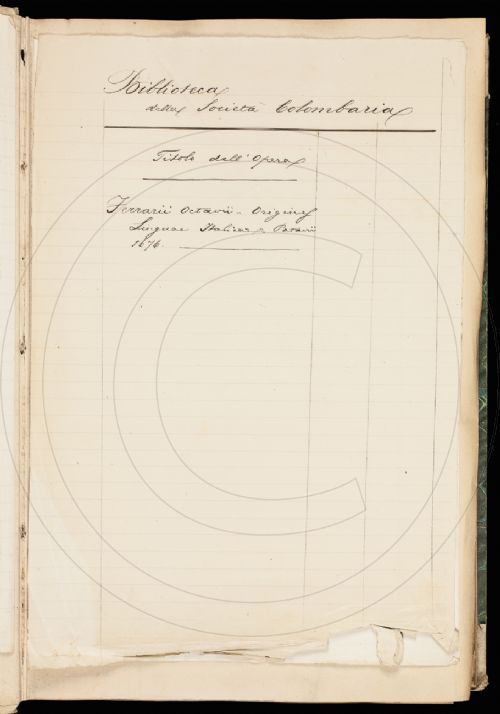 Biblioteca
della Società Colombaria
Titolo dell'Opera
Ferrarii Octavii - Origines
Linguae Italicae - Patavii
1676.